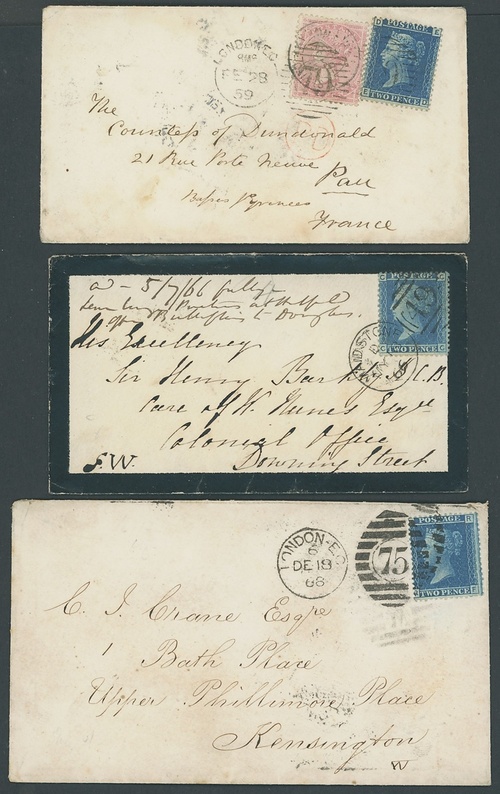 LONDON.E.C
FE 28
59
70
D POSTAGE E
TWO PENCE
E D
The
Countess of Dundonald
21 Rue Porte Neuve
Pau
Basses Pyrenees
France
5/7/66
to Douglas.
POSTAGE
48
TWO PENCE
G
MAIDSTONE
66
His Excellency
Sir Henry C.B.
Care of W. Nunes Esqre
Colonial Office
Downing Street
F.W.
LONDON-E.C
6
DE 18
68
75
POSTAGE R
TWO PENCE
C. J. Crane Esqre
1 Bath Place
Upper Phillimore Place
Kensington
W